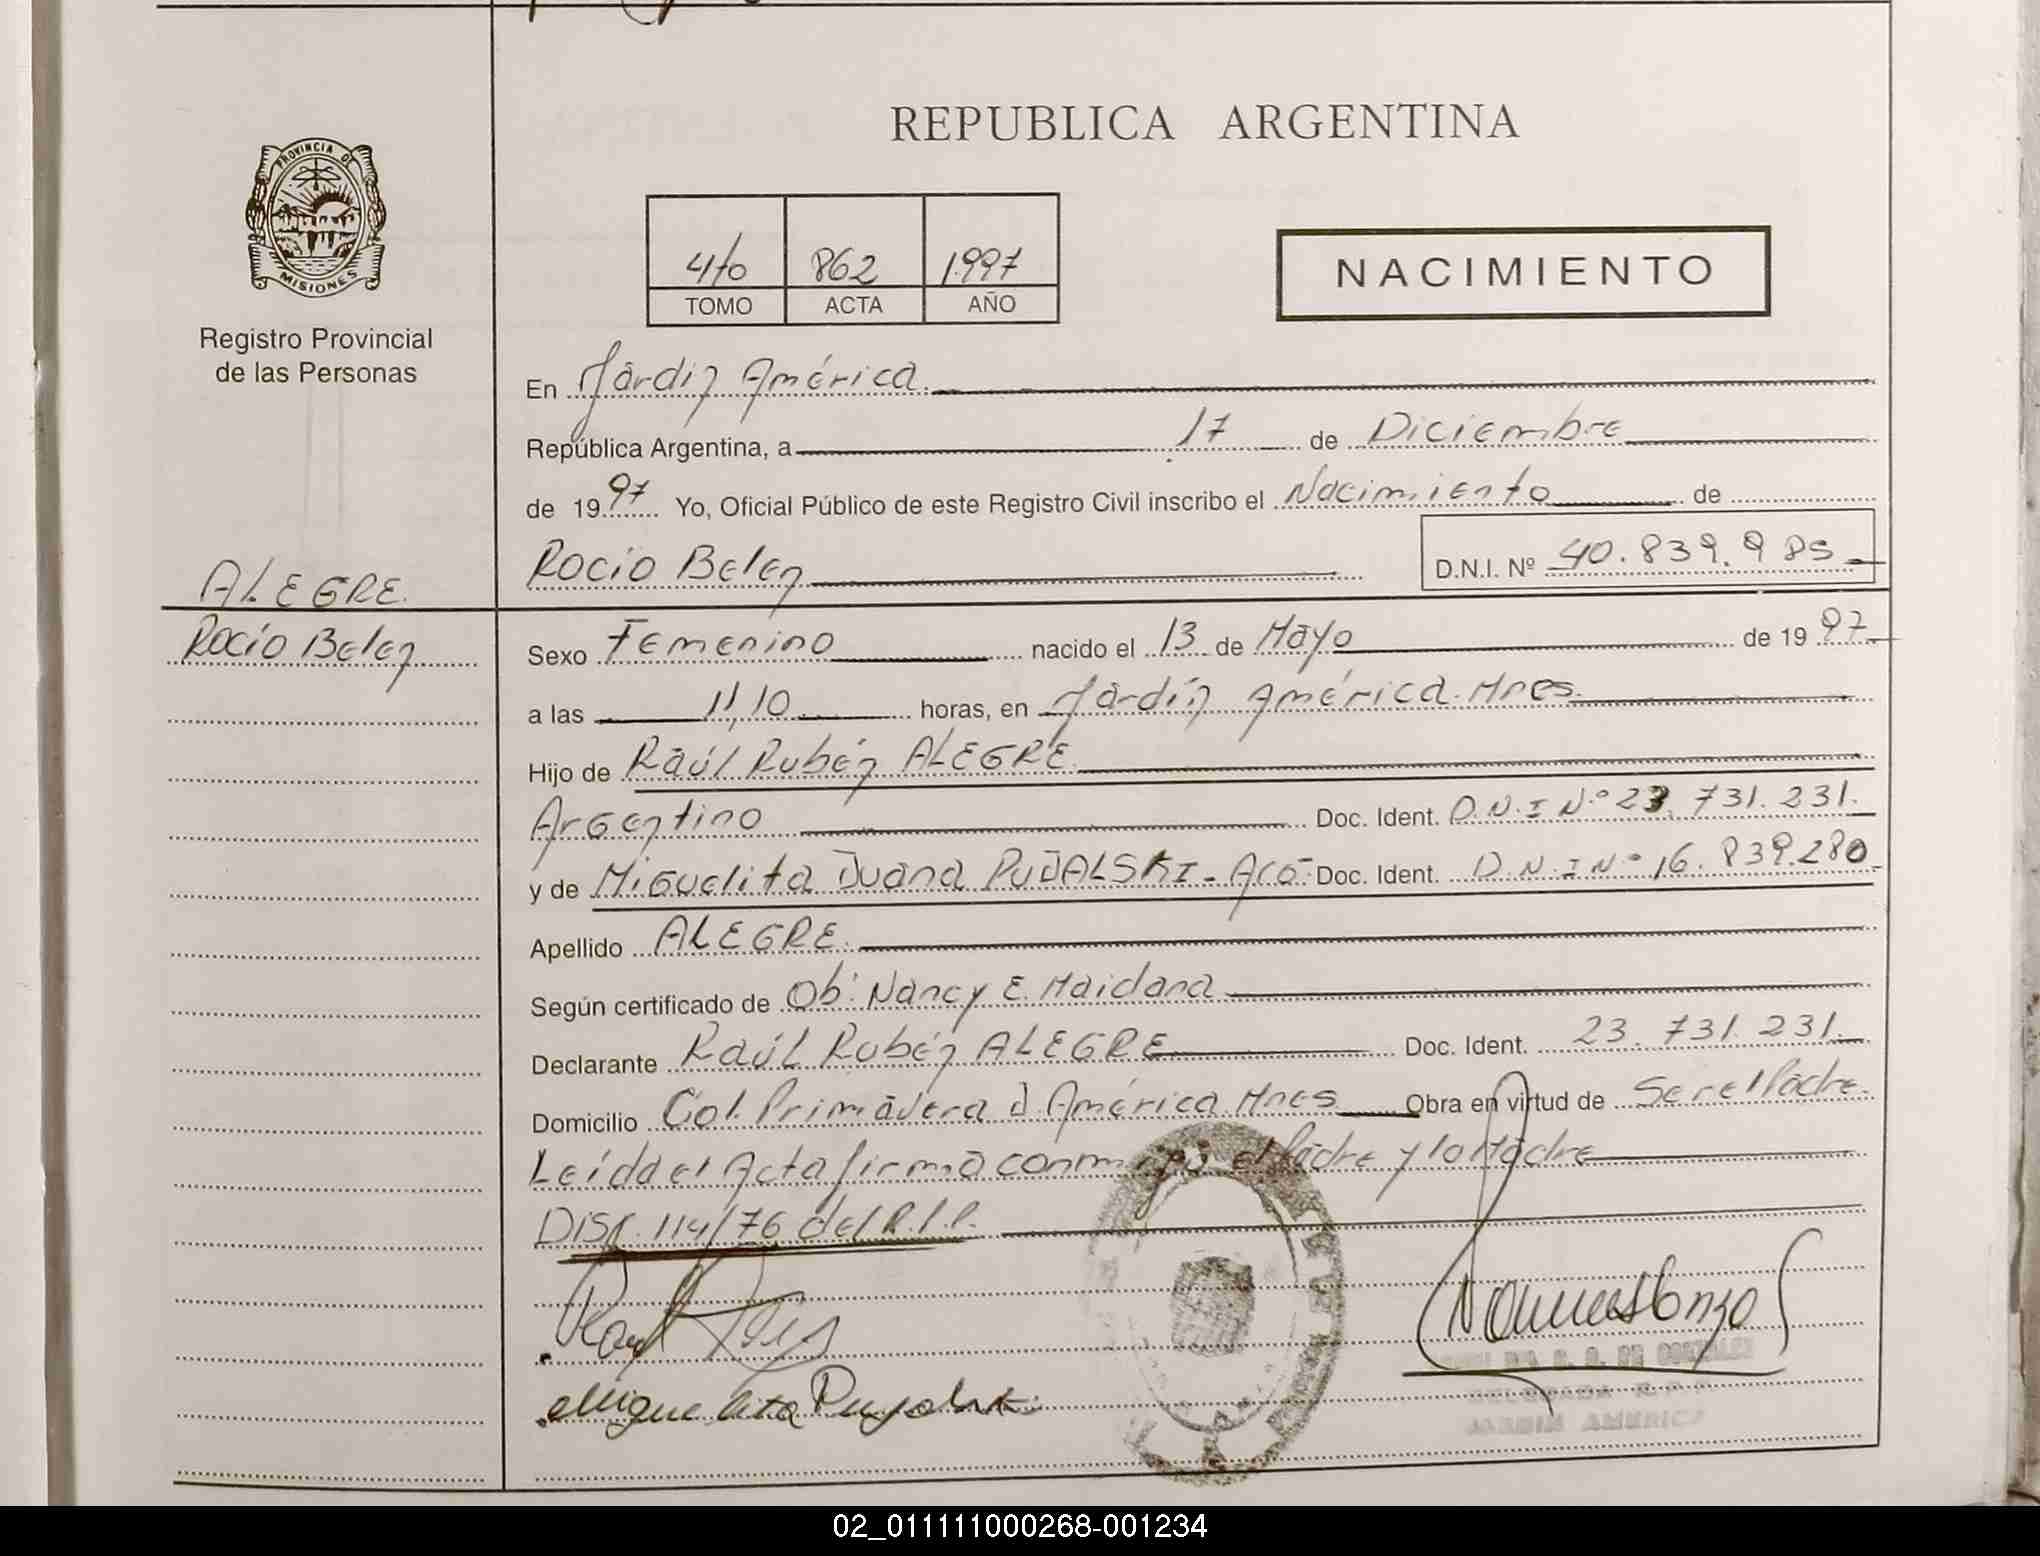 REPUBLICA ARGENTINA
PROVINCIA DE
MISIONES
Registro Provincial
de las Personas
4to 862 1.997
TOMO ACTA AÑO
NACIMIENTO
En Jardín América.
República Argentina, a 17 de Diciembre
de 19 97 Yo, Oficial Público de este Registro Civil inscribo el Nacimiento de
Rocío Belen D.N.I. Nº 40.839.985
ALEGRE.
Rocío Belen
Sexo Femenino nacido el 13 de Mayo de 19 97
a las 11,10 horas, en Jardín América. Mnes.
Hijo de Raúl Rubén ALEGRE.
Argentino Doc. Ident. D.N.I N.º 23.731.231.
y de Miguelita Juana PUJALSKI - Doc. Ident. D.N.I Nº 16.839.280
Apellido ALEGRE.
Según certificado de Ob: Nancy E. Maidana
Declarante Raúl Rubén ALEGRE Doc. Ident. 23.731.231.
Domicilio Col. Primavera J. América. Mnes Obra en virtud de Ser el Padre.
Leída el Acta firmā conmigo el Padre y la Madre
DISP. 114/76 del R.P.P.
Miguelita
JARDIN AMERICA
02_011111000268-001234